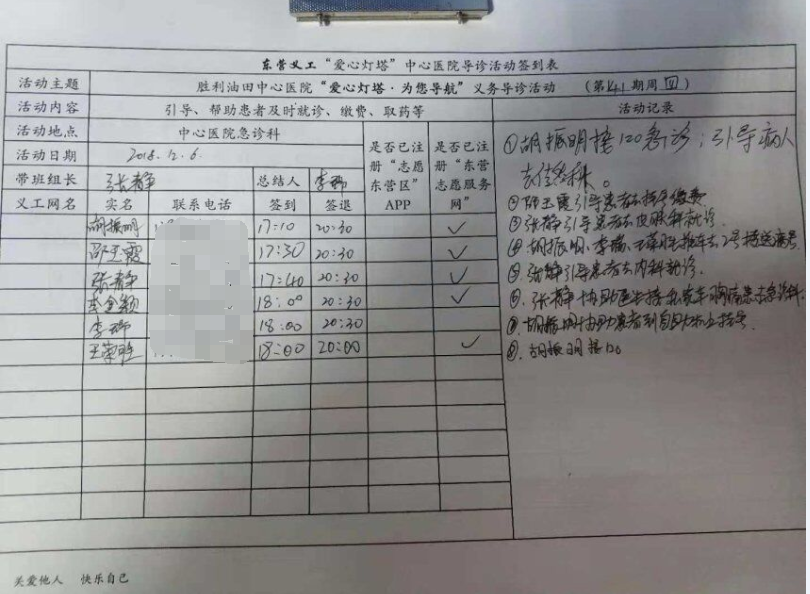 东营义工“爱心灯塔”中心医院导诊活动签到表
活动主题 胜利油田中心医院“爱心灯塔·为您导航”义务导诊活动 （第141期周四）
活动内容 引导、帮助患者及时就诊、缴费、取药等 活动记录
活动地点 中心医院急诊科 是否已注册“志愿东营区”APP 是否已注册“东营志愿服务网”
活动日期 2018.12.6.
带班组长 张静 总结人 李娜
义工网名 实名 联系电话 签到 签退
胡振明 17:10 20:30 ✓
邵玉霞 17:30 20:30 ✓
张静 17:40 20:30 ✓
李金颖 18:00 20:30 ✓
李娜 18:00 20:30
王荣胜 18:00 20:00 ✓
①胡振明接120急诊；引导病人
去
引导患者去挂号缴费
③张静引导患者去皮肤科就诊.
胡振明、李娜、王荣胜推车去2号楼送
⑤.张静引导患者去内科就诊.
张静协助医生接
胡振明协助患者到自助机上挂号.
胡振明接120
关爱他人 快乐自己